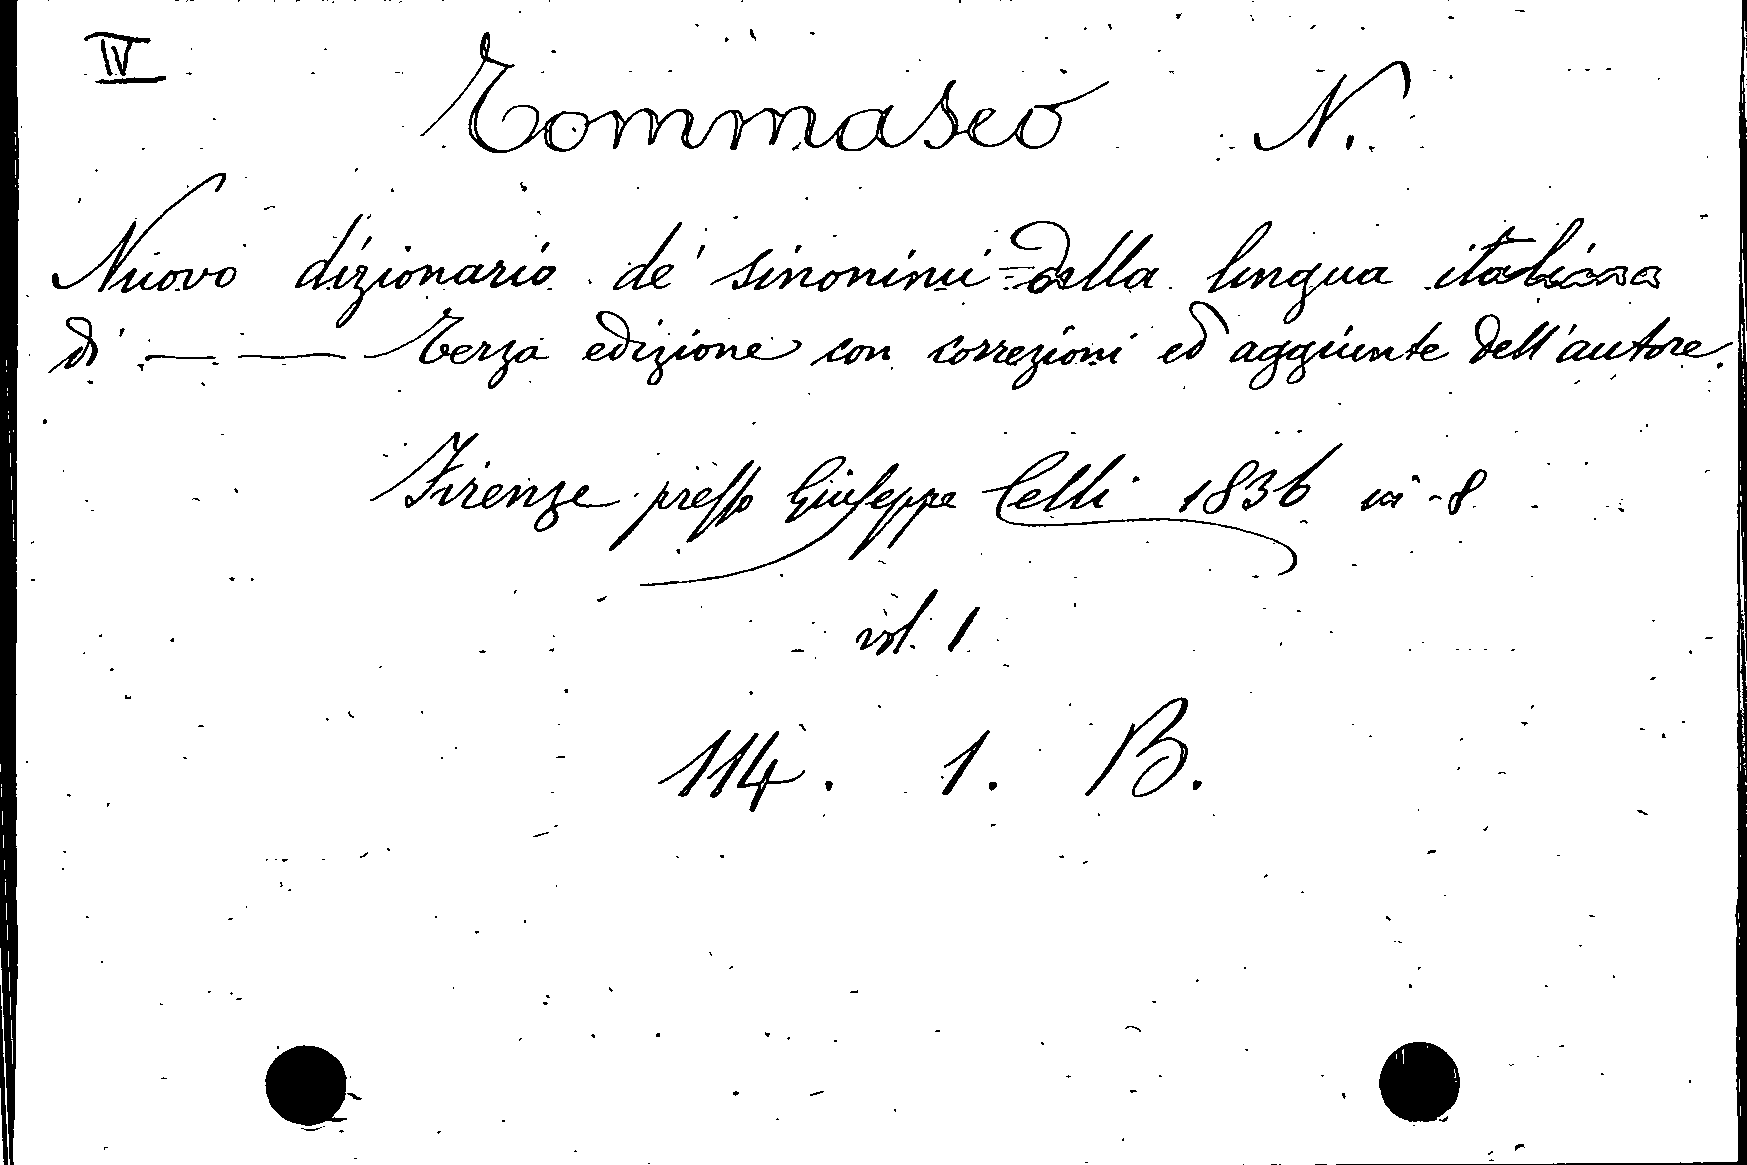 IV
Tommaseo N.
Nuovo dizionario de' sinonimi della lingua italiana
di — — Terza edizione con correzioni ed aggiunte dell'autore.
Firenze presso Giuseppe Celli 1836 in-8
vol. 1
114. 1. B.